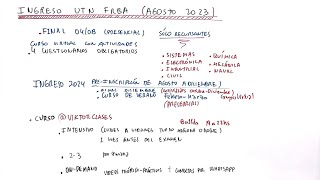 INGRESO UTN FRBA (AGOSTO 2023)
FINAL 04/08 (PRESENCIAL)
SÓLO RECURSANTES
CURSO VIRTUAL CON ACTIVIDADES
4 CUESTIONARIOS OBLIGATORIOS
• SISTEMAS • QUÍMICA
• ELECTRÓNICA • MECÁNICA
• INDUSTRIAL • NAVAL
• CIVIL
INGRESO 2024 PRE-INSCRIPCIÓN DE AGOSTO A DICIEMBRE
CURSO DE VERANO FEBRERO-MARZO
(PRESENCIAL)
• CURSO @VIKTORCLASES
INTENSIVO (LUNES A VIERNES TURNO MAÑANA O NOCHE)
1 MES ANTES DEL EXAMEN
2-3
ON-DEMAND VIDEOS TEÓRICO-PRÁCTICOS + CONSULTAS POR WHATSAPP